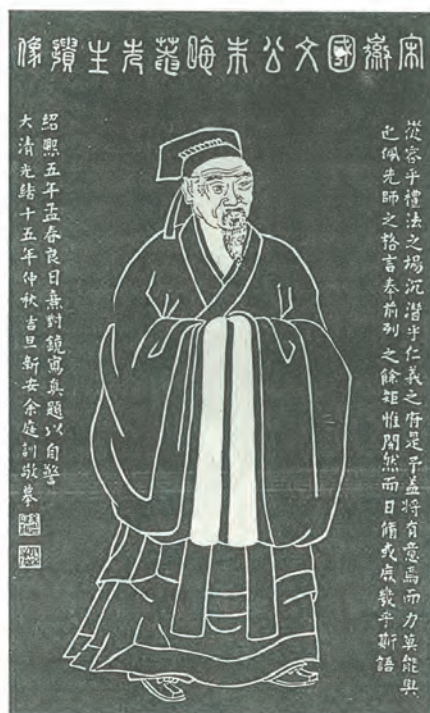 宋徽國文公朱晦菴先生遺像
從容乎禮法之場沉潛乎仁義之府是予蓋將有意焉而力莫能與
也佩先師之格言奉前列之餘矩惟闇然而日脩或庶幾乎斯語
紹熙五年孟春良日熹對鏡寫真題以自警
大清光緒十五年仲秋吉旦新安余庭訓敬摹